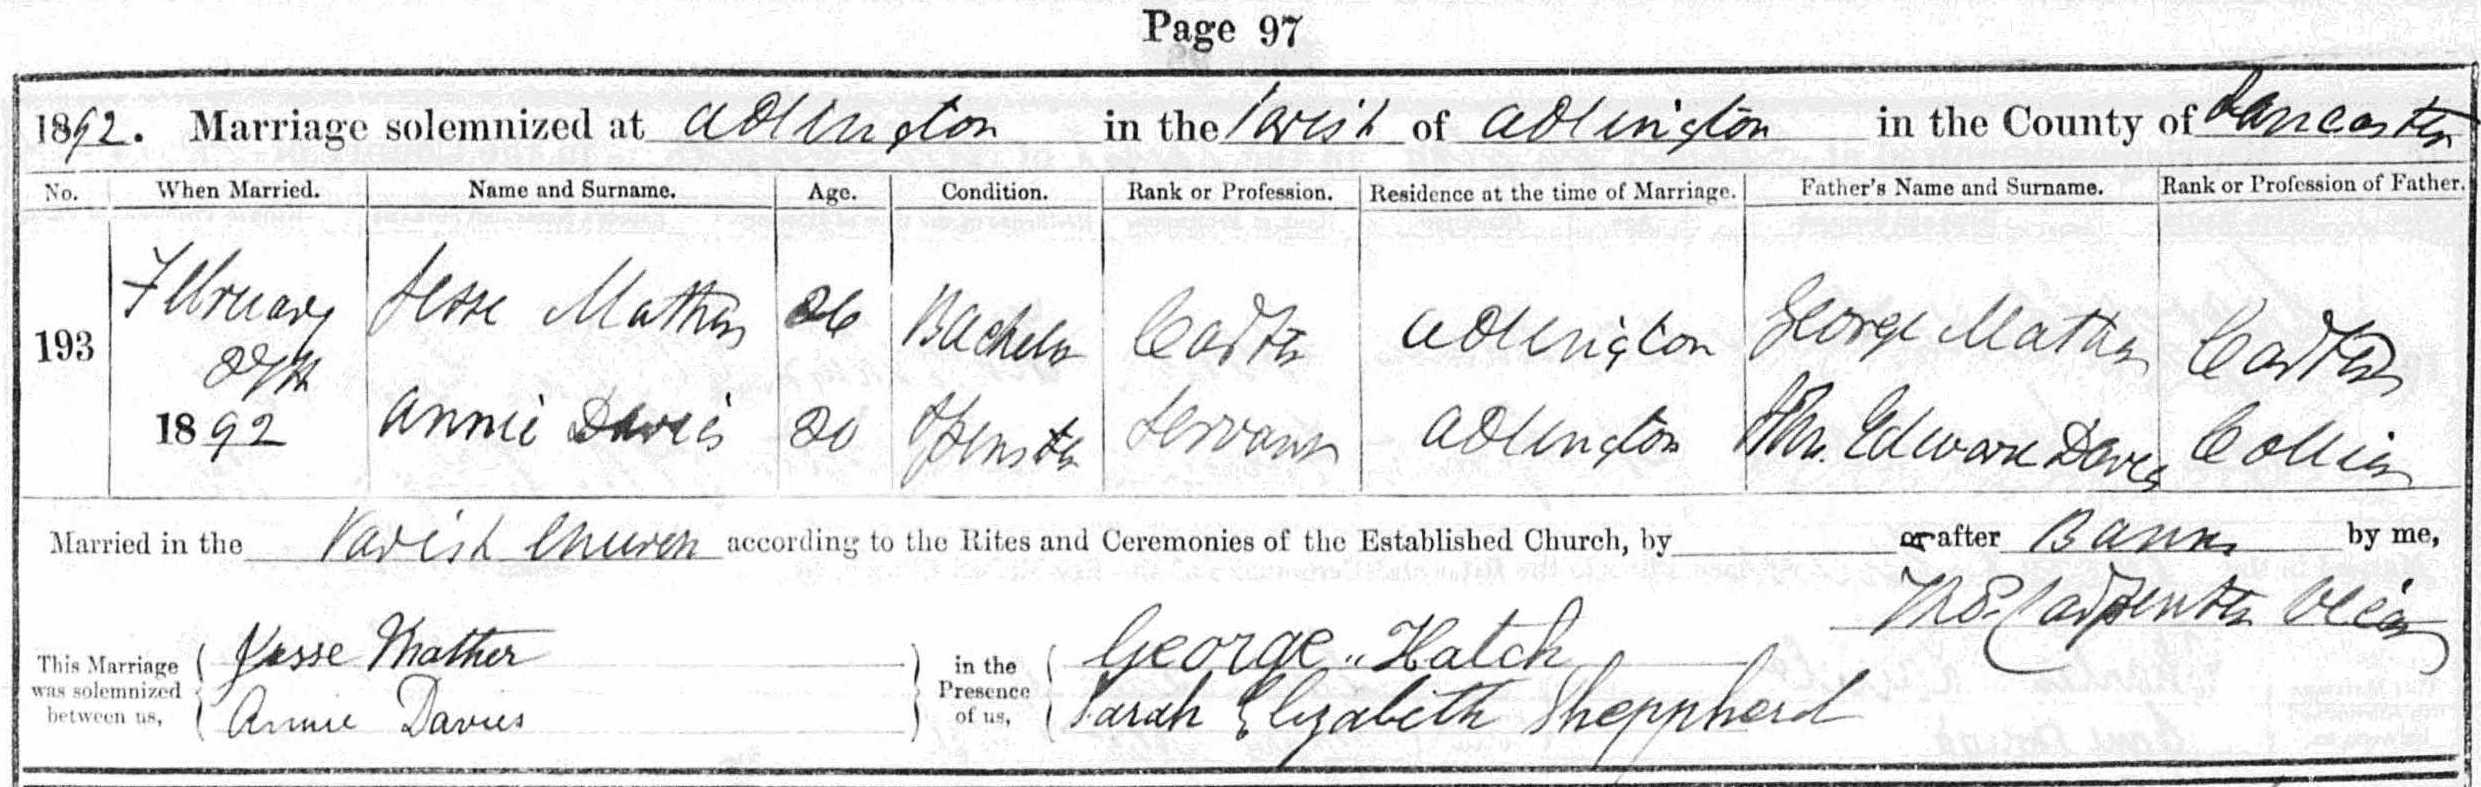 Page 97
1892. Marriage solemnized at Adlington in the Parish of Adlington in the County of Lancaster
No. When Married. Name and Surname. Age. Condition. Rank or Profession. Residence at the time of Marriage. Father's Name and Surname. Rank or Profession of Father.
193 February 27th 1892 Jesse Mather 26 Bachelor Carter Adlington George Mather Carter
Annie Davies 20 Spinster Servant Adlington Edward Davies Collier
Married in the Parish Church according to the Rites and Ceremonies of the Established Church, by or after Banns by me,
Carpenter Vicar
This Marriage was solemnized between us, Jesse Mather in the Presence of us, George Hatch
Annie Davies Sarah Elizabeth Sheppherd